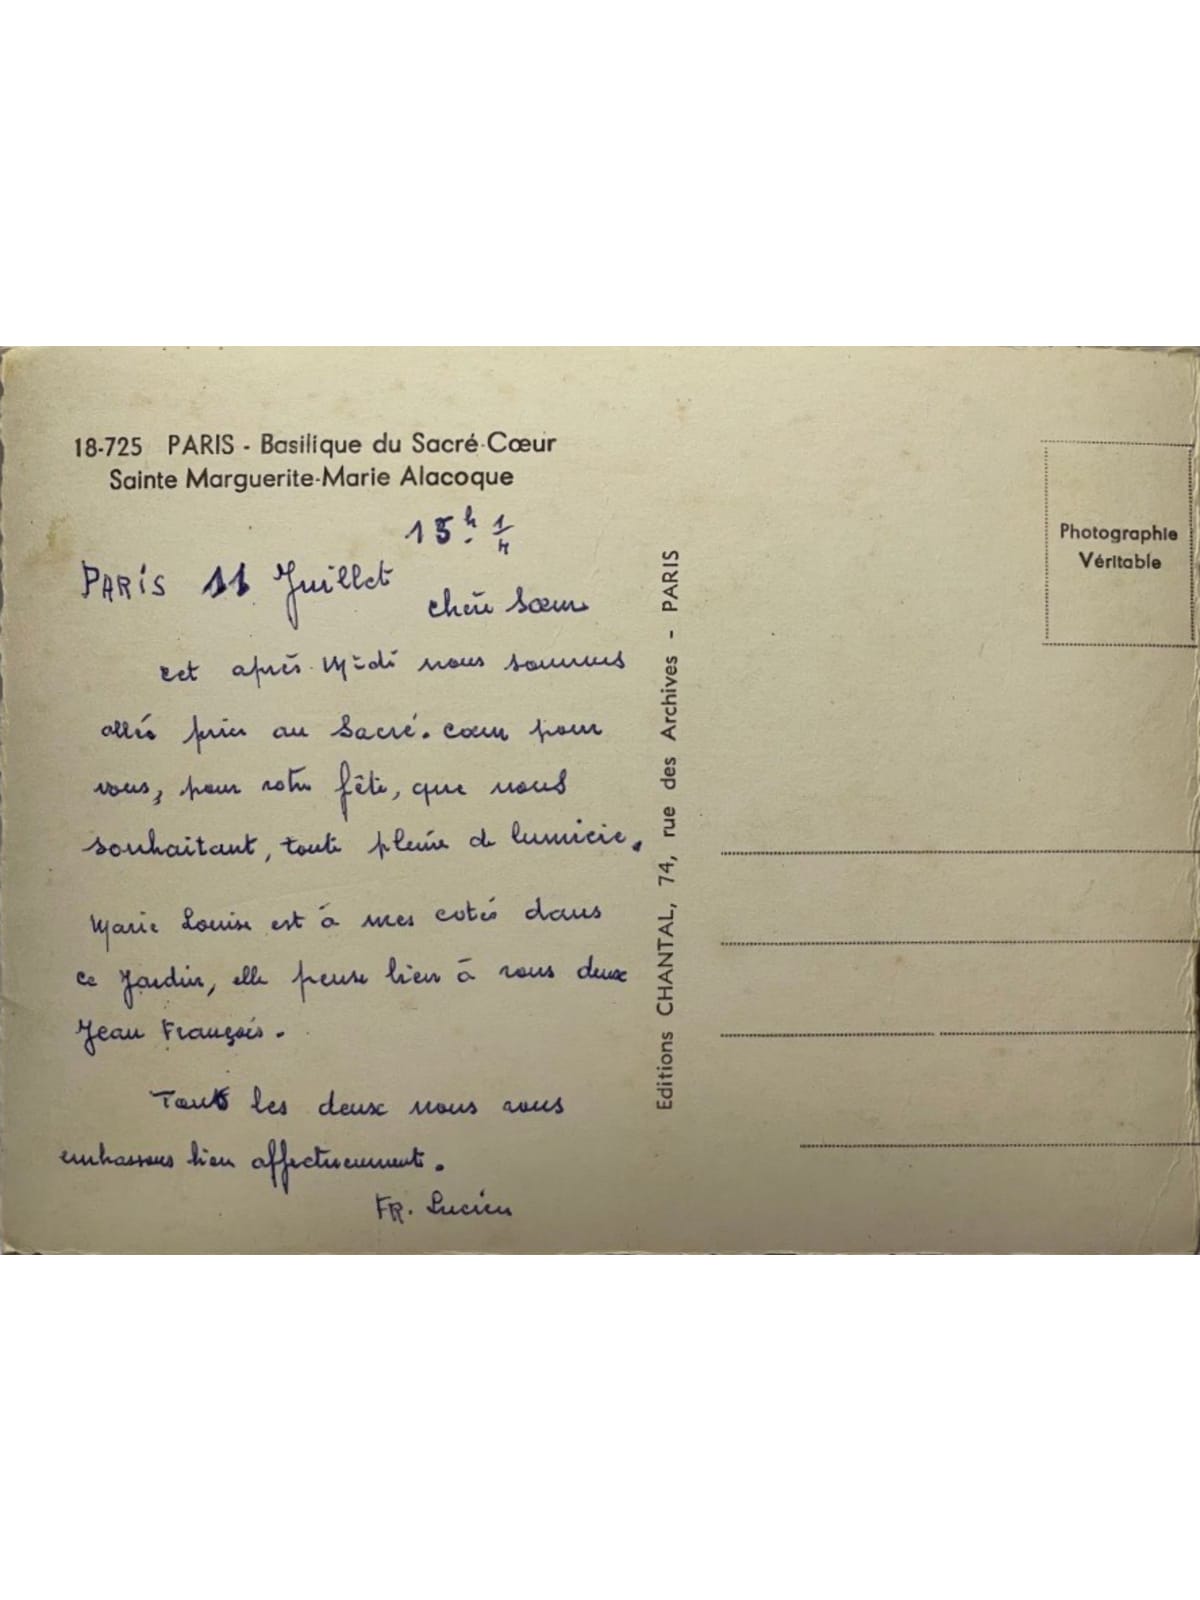 18-725 PARIS - Basilique du Sacré-Cœur
Sainte Marguerite-Marie Alacoque
15h. 1/4
PARIS 11 Juillet
chère Sœur
cet après-Midi nous sommes
allés prier au Sacré-Cœur pour
vous, pour votre fête, que nous
souhaitant, toute pleine de lumière.
Marie Louise est à mes cotés dans
ce Jardin, elle pense bien à vous deux
Jean François.
Tout les deux nous vous
embassons bien affectueusement.
FR. Lucien
Editions CHANTAL, 74, rue des Archives - PARIS
Photographie
Véritable